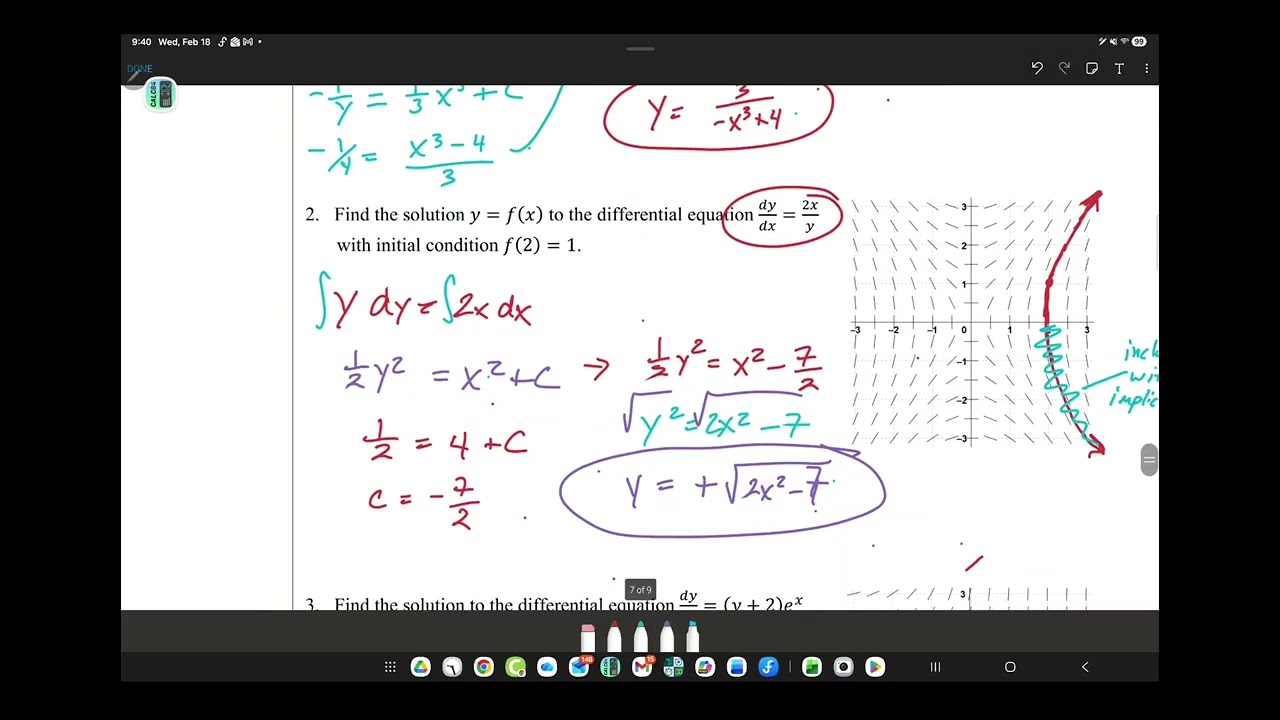 9:40 Wed, Feb 18
99
DONE
CALC86
-1/y = 1/3 x³ + C
y = 3/(-x³+4)
-1/y = (x³-4)/3
2. Find the solution y = f(x) to the differential equation dy/dx = 2x/y
with initial condition f(2) = 1.
∫y dy = ∫2x dx
1/2 y² = x² + C → 1/2 y² = x² - 7/2
√y² = √2x² - 7
1/2 = 4 + C
y = +√2x²-7
C = -7/2
3
2
1
-3 -2 -1 0 1 3
-1
-2
-3
incl
wi
implic
7 of 9
3. Find the solution to the differential equation dy/dx = (y + 2)eˣ
3
148
15